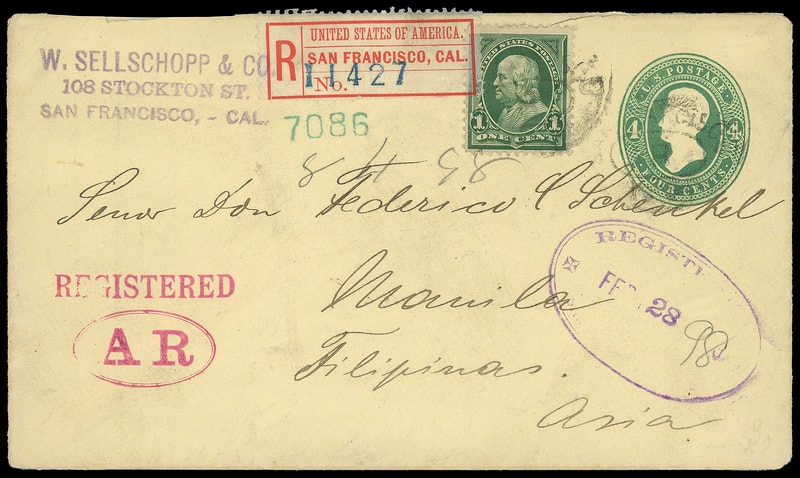 W. SELLSCHOPP & CO.
108 STOCKTON ST.
SAN FRANCISCO, - CAL.
R
UNITED STATES OF AMERICA.
SAN FRANCISCO, CAL.
No. 11427
7086
UNITED STATES POSTAGE
1 1
ONE CENT
U.S. POSTAGE
4 4
FOUR CENTS
Senor Don Federico C Schenkel
Manila
Filipinas.
Asia.
REGISTERED
A R
REGISTE
FEB 28
98